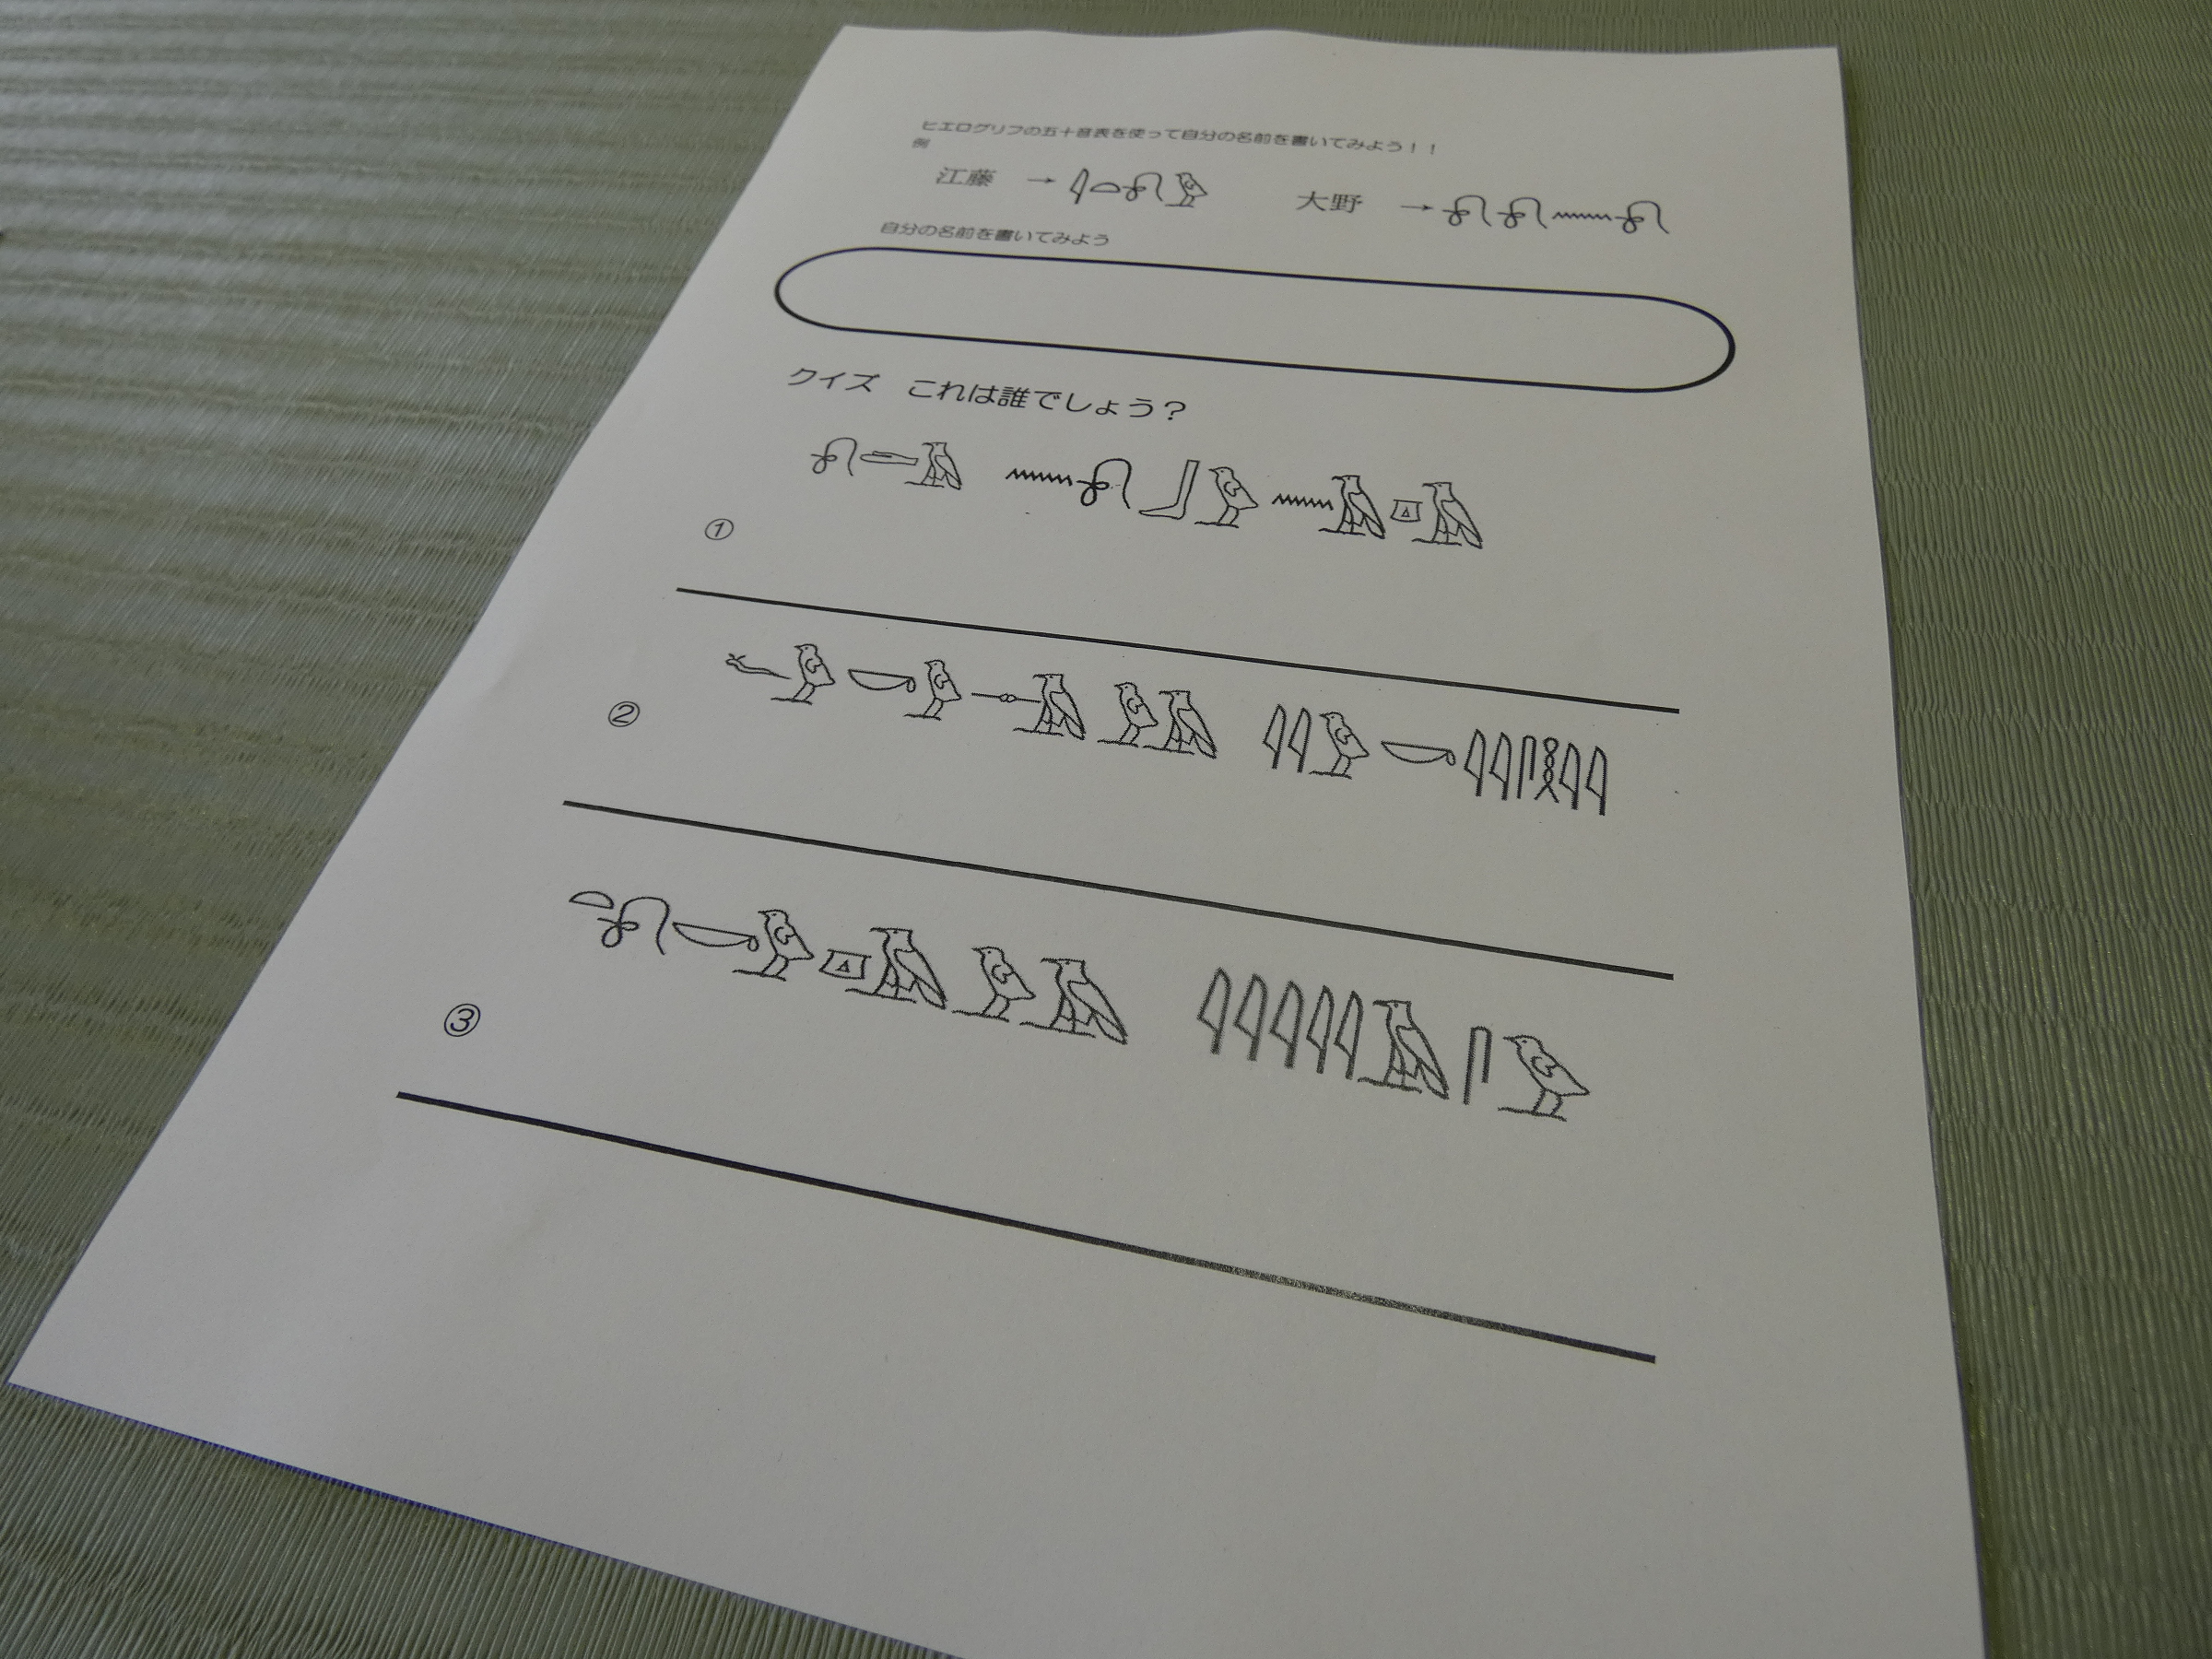 ヒエログリフの五十音表を使って自分の名前を書いてみよう！！
例
江藤 → 𓇋𓏏𓍯𓅱 大野 → 𓍯𓍯𓈖𓍯
自分の名前を書いてみよう
クイズ これは誰でしょう？
① 𓍯𓂧𓄿 𓈖𓍯𓃀𓅱𓈖𓄿𓎼𓄿
② 𓆑𓅱𓎡𓅱𓊃𓄿𓅱𓄿 𓇌𓅱𓎡𓇌𓋴𓎛𓇌
③ 𓏏𓍯𓎡𓅱𓎼𓄿𓅱𓄿 𓇌𓇋𓇌𓄿𓋴𓅱